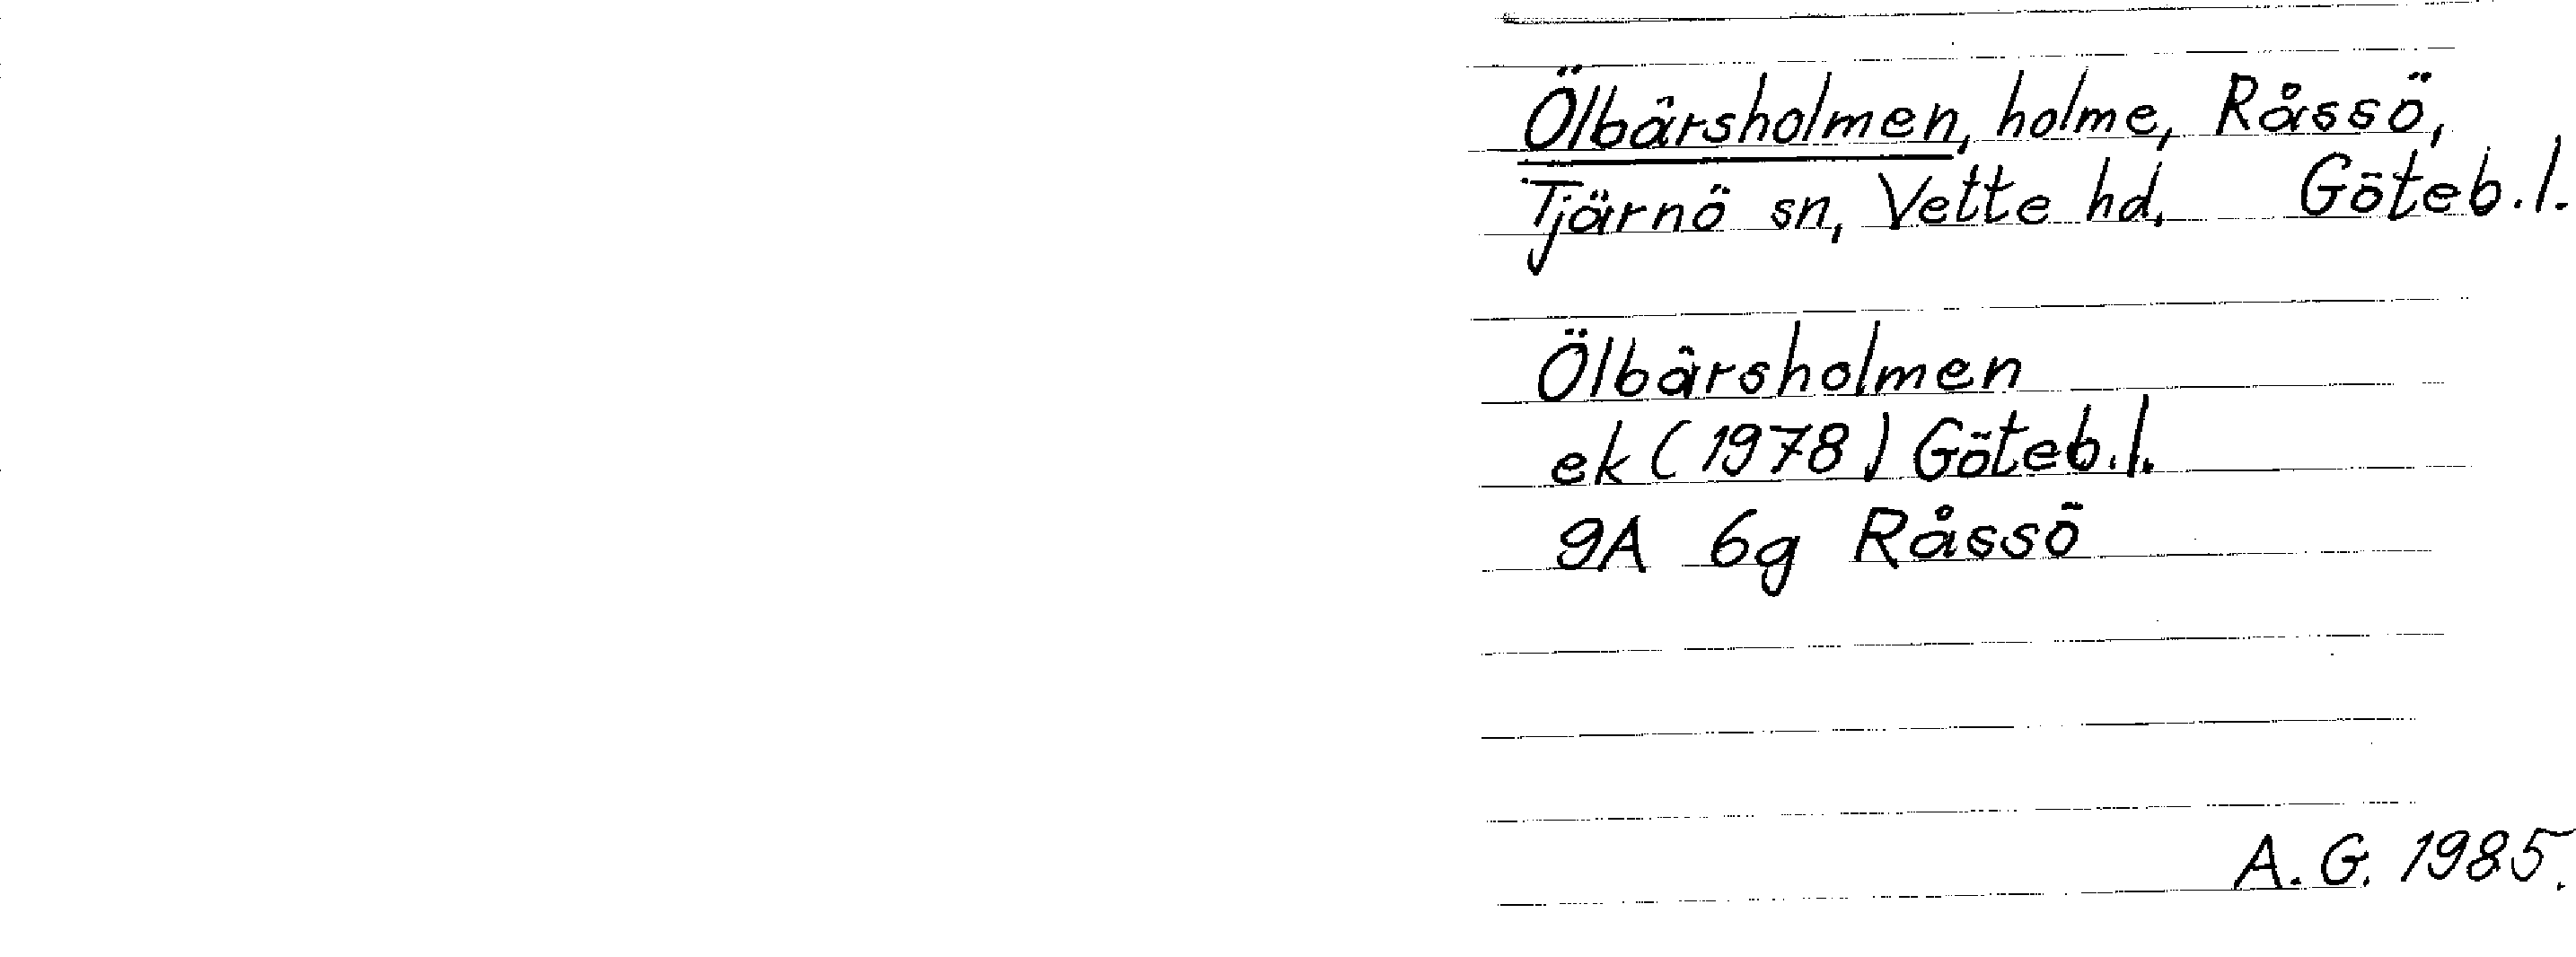 Ölbärsholmen, holme, Råssö,
Tjärnö sn, Vette hd, Göteb.l.
Ölbärsholmen
ek (1978) Göteb.l.
9A 6g Råssö
A.G. 1985.